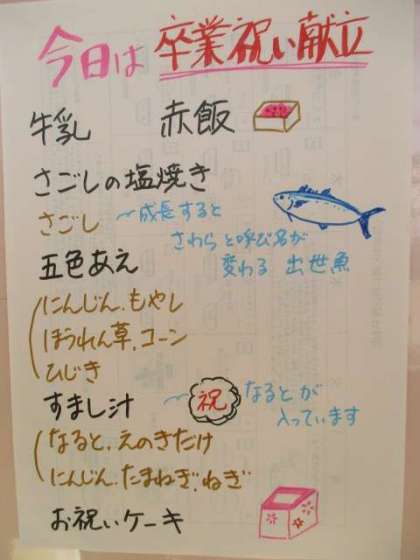 今日は 卒業祝い献立
牛乳 赤飯
さごしの塩焼き
さごし 〜成長すると
さわらと呼び名が
変わる 出世魚
五色あえ
にんじん.もやし
ほうれん草.コーン
ひじき
すまし汁 〜 祝 なるとが
入っています
なると.えのきたけ
にんじん.たまねぎ.ねぎ
お祝いケーキ